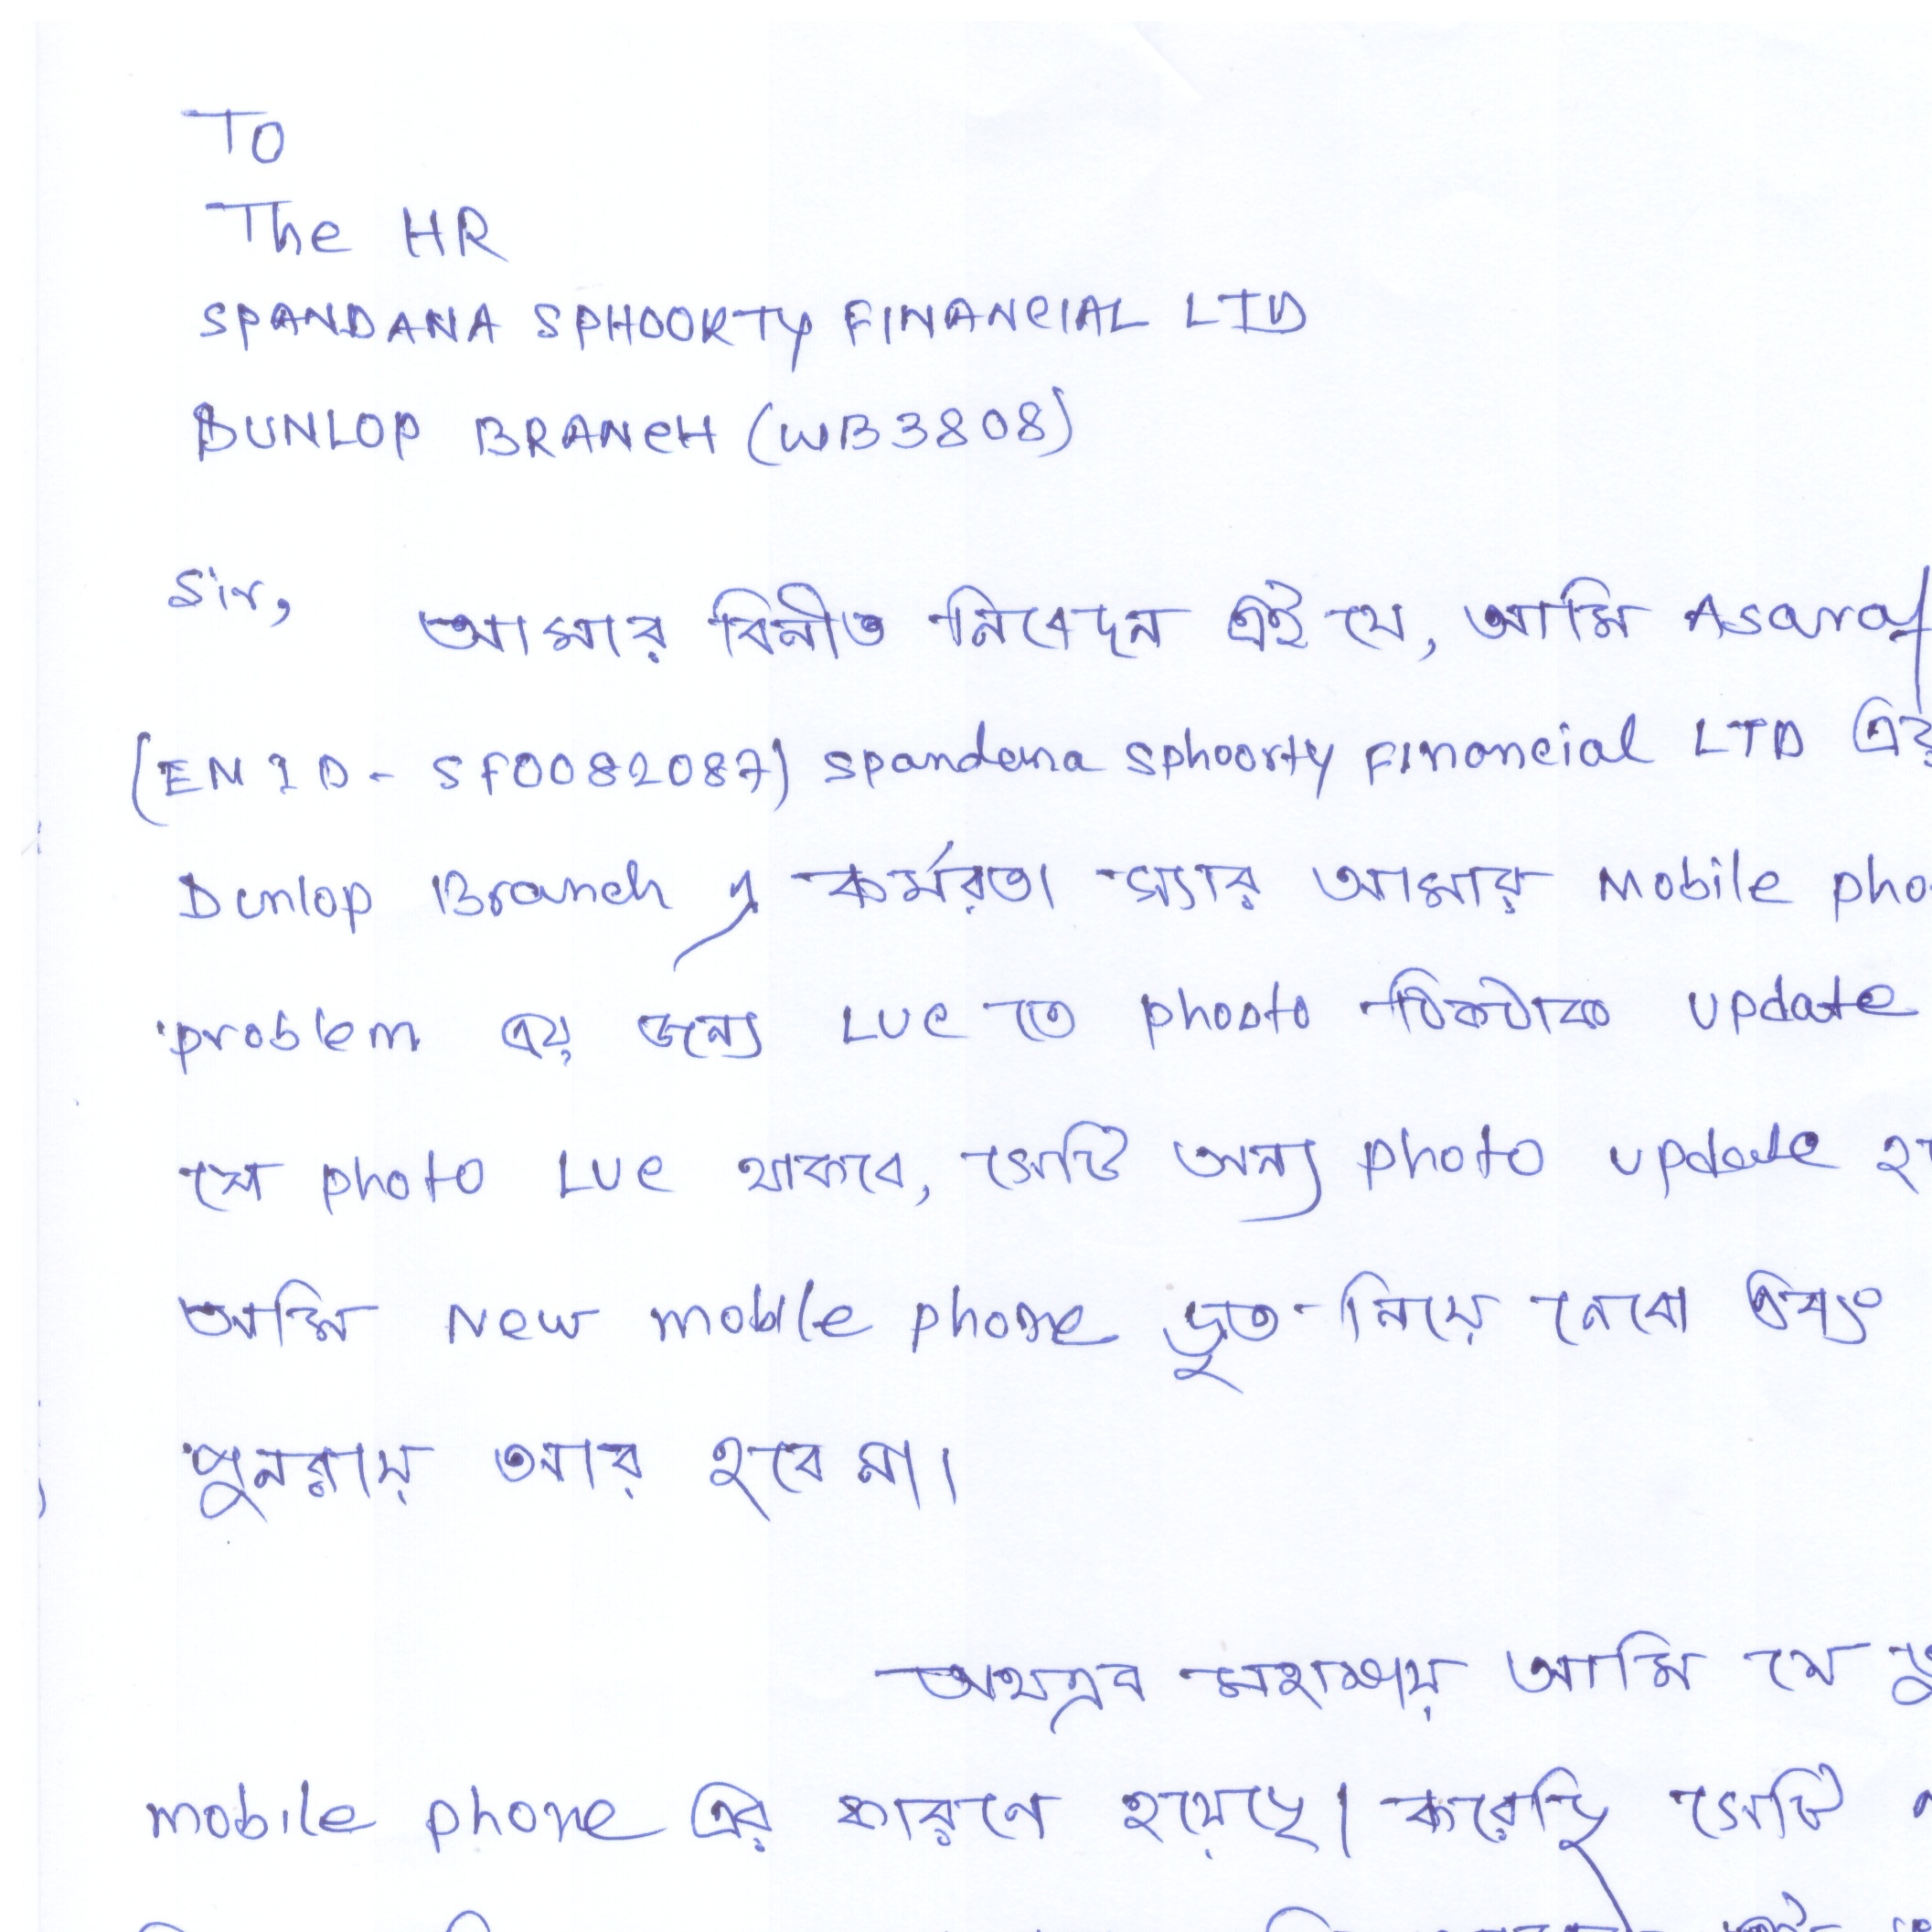 To
The HR
SPANDANA SPHOORTY FINANCIAL LTD
DUNLOP BRANCH (WB3808)
Sir,
আমার বিনীত নিবেদন এই যে, আমি Asaraf
(EM ID - SF0082087) spandana sphoorty Financial LTD এর
Dunlop Branch এ কর্মরত। স্যার আমার Mobile pho
problem এর জন্য LUC তে phooto ঠিকঠাক update
যে photo LUC থাকবে, সেটি অন্য photo update
আমি New mobile phone দ্রুত নিয়ে নেবো এবং
পুনরায় আর হবে না।
অথএব মহাশয় আমি যে
mobile phone এর কারনে হয়েছে। করেছি সেটি